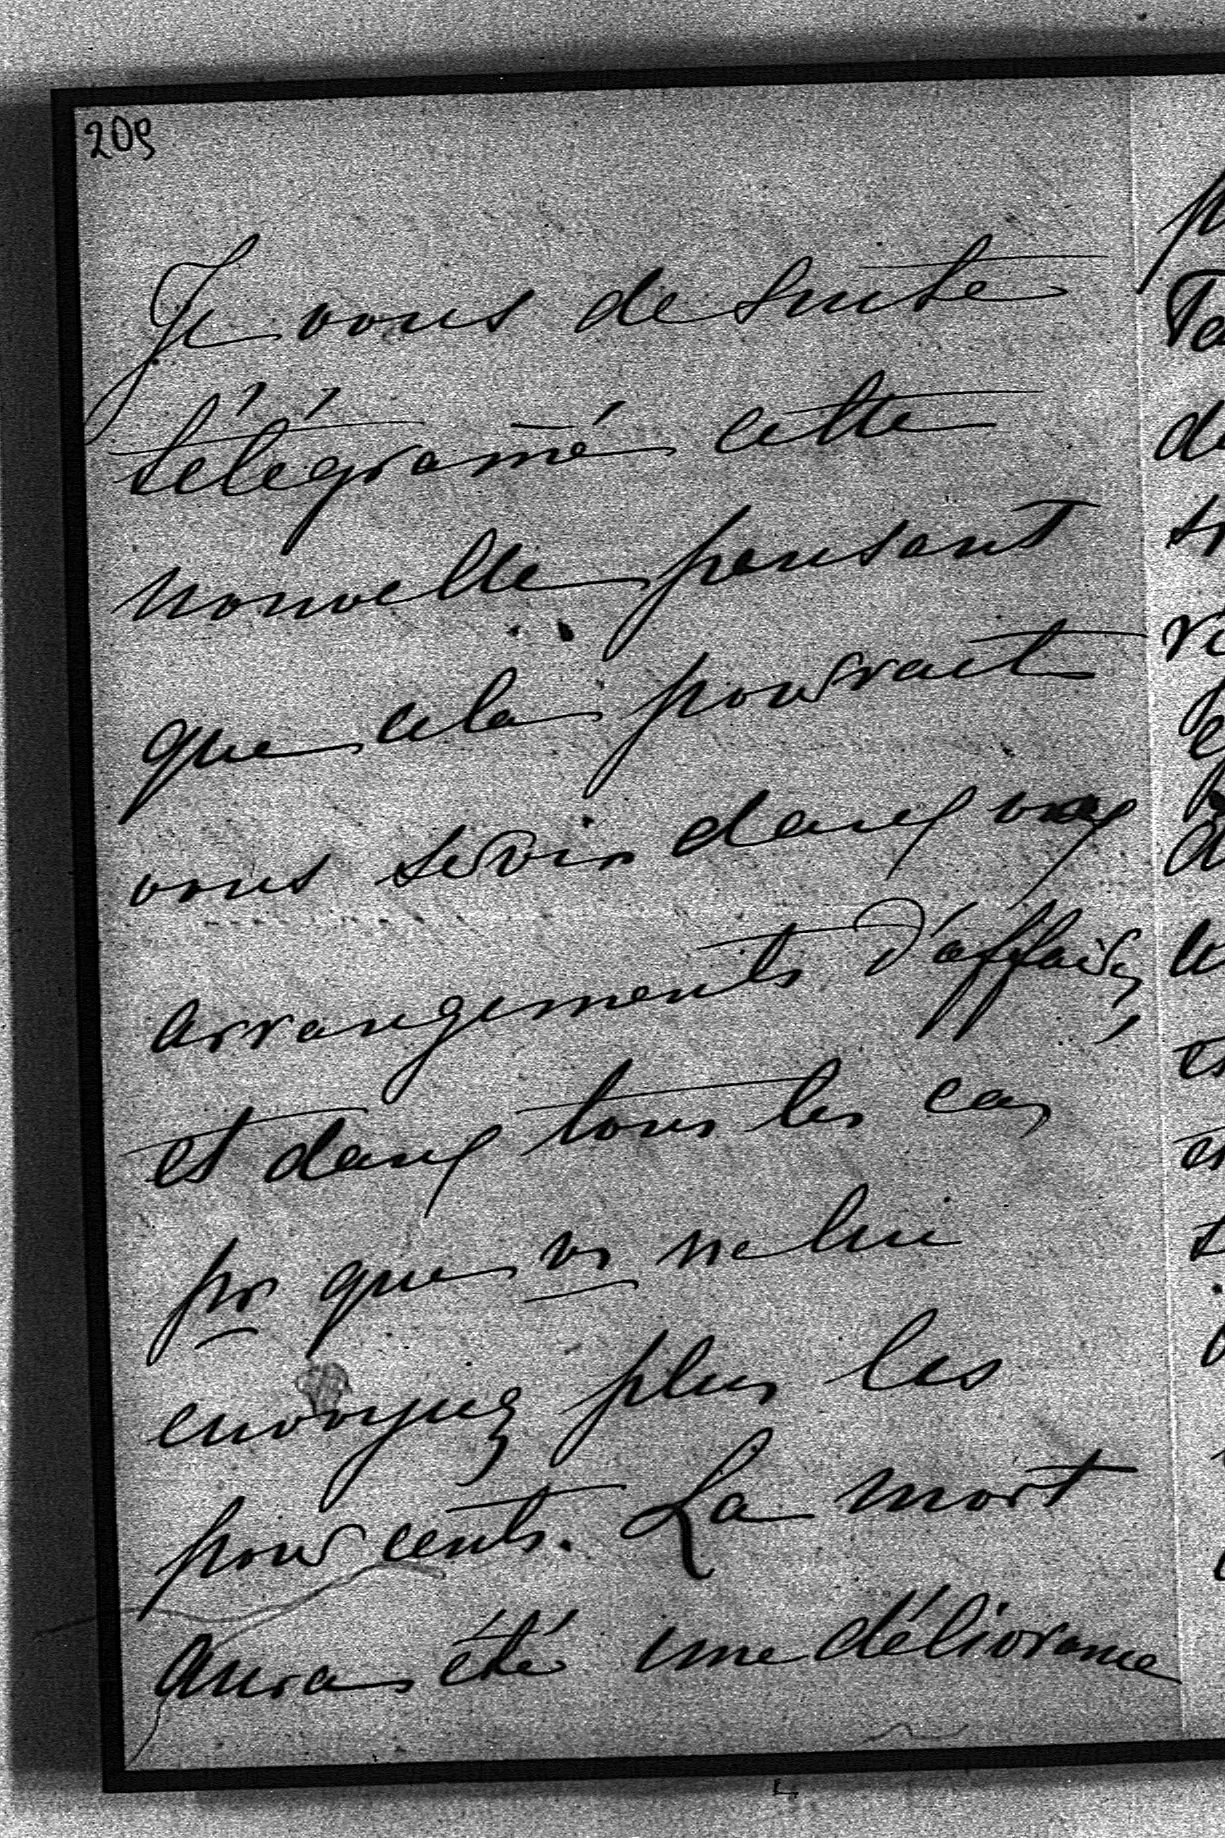 209
Je vous de suite
télégramé cette
nouvelle pensant
que cela pourrait
vous servir dans vos
arrangements d'affaires,
et dans tous les cas
pr que vs ne lui
envoyiez plus les
pour cents. La mort
aura été une délivrance